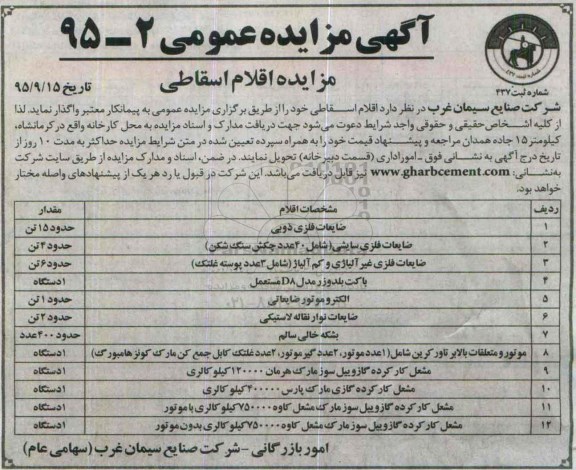 آگهی مزایده عمومی ۲ ـ ۹۵
شماره ثبت ۴۳۷
مزایده اقلام اسقاطی
تاریخ ۹۵/۹/۱۵
شرکت صنایع سیمان غرب در نظر دارد اقلام اسقاطی خود را از طریق برگزاری مزایده عمومی به پیمانکار معتبر واگذار نماید. لذا
از کلیه اشخاص حقیقی و حقوقی واجد شرایط دعوت می‌شود جهت دریافت مدارک و اسناد مزایده به محل کارخانه واقع در کرمانشاه،
کیلومتر ۱۵ جاده همدان مراجعه و پیشنهاد قیمت خود را به همراه سپرده تعیین شده در متن شرایط مزایده حداکثر به مدت ۱۰ روز از
تاریخ درج آگهی به نشانی فوق - امور اداری (قسمت دبیرخانه) تحویل نمایند. در ضمن، اسناد و مدارک مزایده از طریق سایت شرکت
به نشانی: www.gharbcement.com نیز قابل دریافت می‌باشد. این شرکت در قبول یا رد هر یک از پیشنهادهای واصله مختار
خواهد بود.
ردیف مشخصات اقلام مقدار
۱ ضایعات فلزی ذوبی حدود ۱۵ تن
۲ ضایعات فلزی سایشی (شامل ۴۰ عدد چکش سنگ شکن) حدود ۴ تن
۳ ضایعات فلزی غیر آلیاژی و کم آلیاژ (شامل ۳ عدد پوسته غلتک) حدود ۶ تن
۴ باکت بلدوزر مدل D8 مستعمل ۱ دستگاه
۵ الکتروموتور ضایعاتی حدود ۱ تن
۶ ضایعات نوار نقاله لاستیکی حدود ۲ تن
۷ بشکه خالی سالم حدود ۴۰۰ عدد
۸ موتور و متعلقات بالابر تاور کرین شامل (۱ عدد موتور، ۲ عدد گیر موتور، ۲ عدد غلتک کابل جمع کن مارک کونز هامبورگ) ۱ دستگاه
۹ مشعل کار کرده گازوییل سوز مارک هرمان ۱۲۰۰۰۰ کیلو کالری ۱ دستگاه
۱۰ مشعل کار کرده گازی مارک پارس ۴۰۰۰۰۰ کیلو کالری ۱ دستگاه
۱۱ مشعل کار کرده گازوییل سوز مارک مشعل کاوه ۷۵۰۰۰۰ کیلو کالری با موتور ۱ دستگاه
۱۲ مشعل کار کرده گازوییل سوز مارک مشعل کاوه ۷۵۰۰۰۰ کیلو کالری بدون موتور ۱ دستگاه
امور بازرگانی - شرکت صنایع سیمان غرب (سهامی عام)